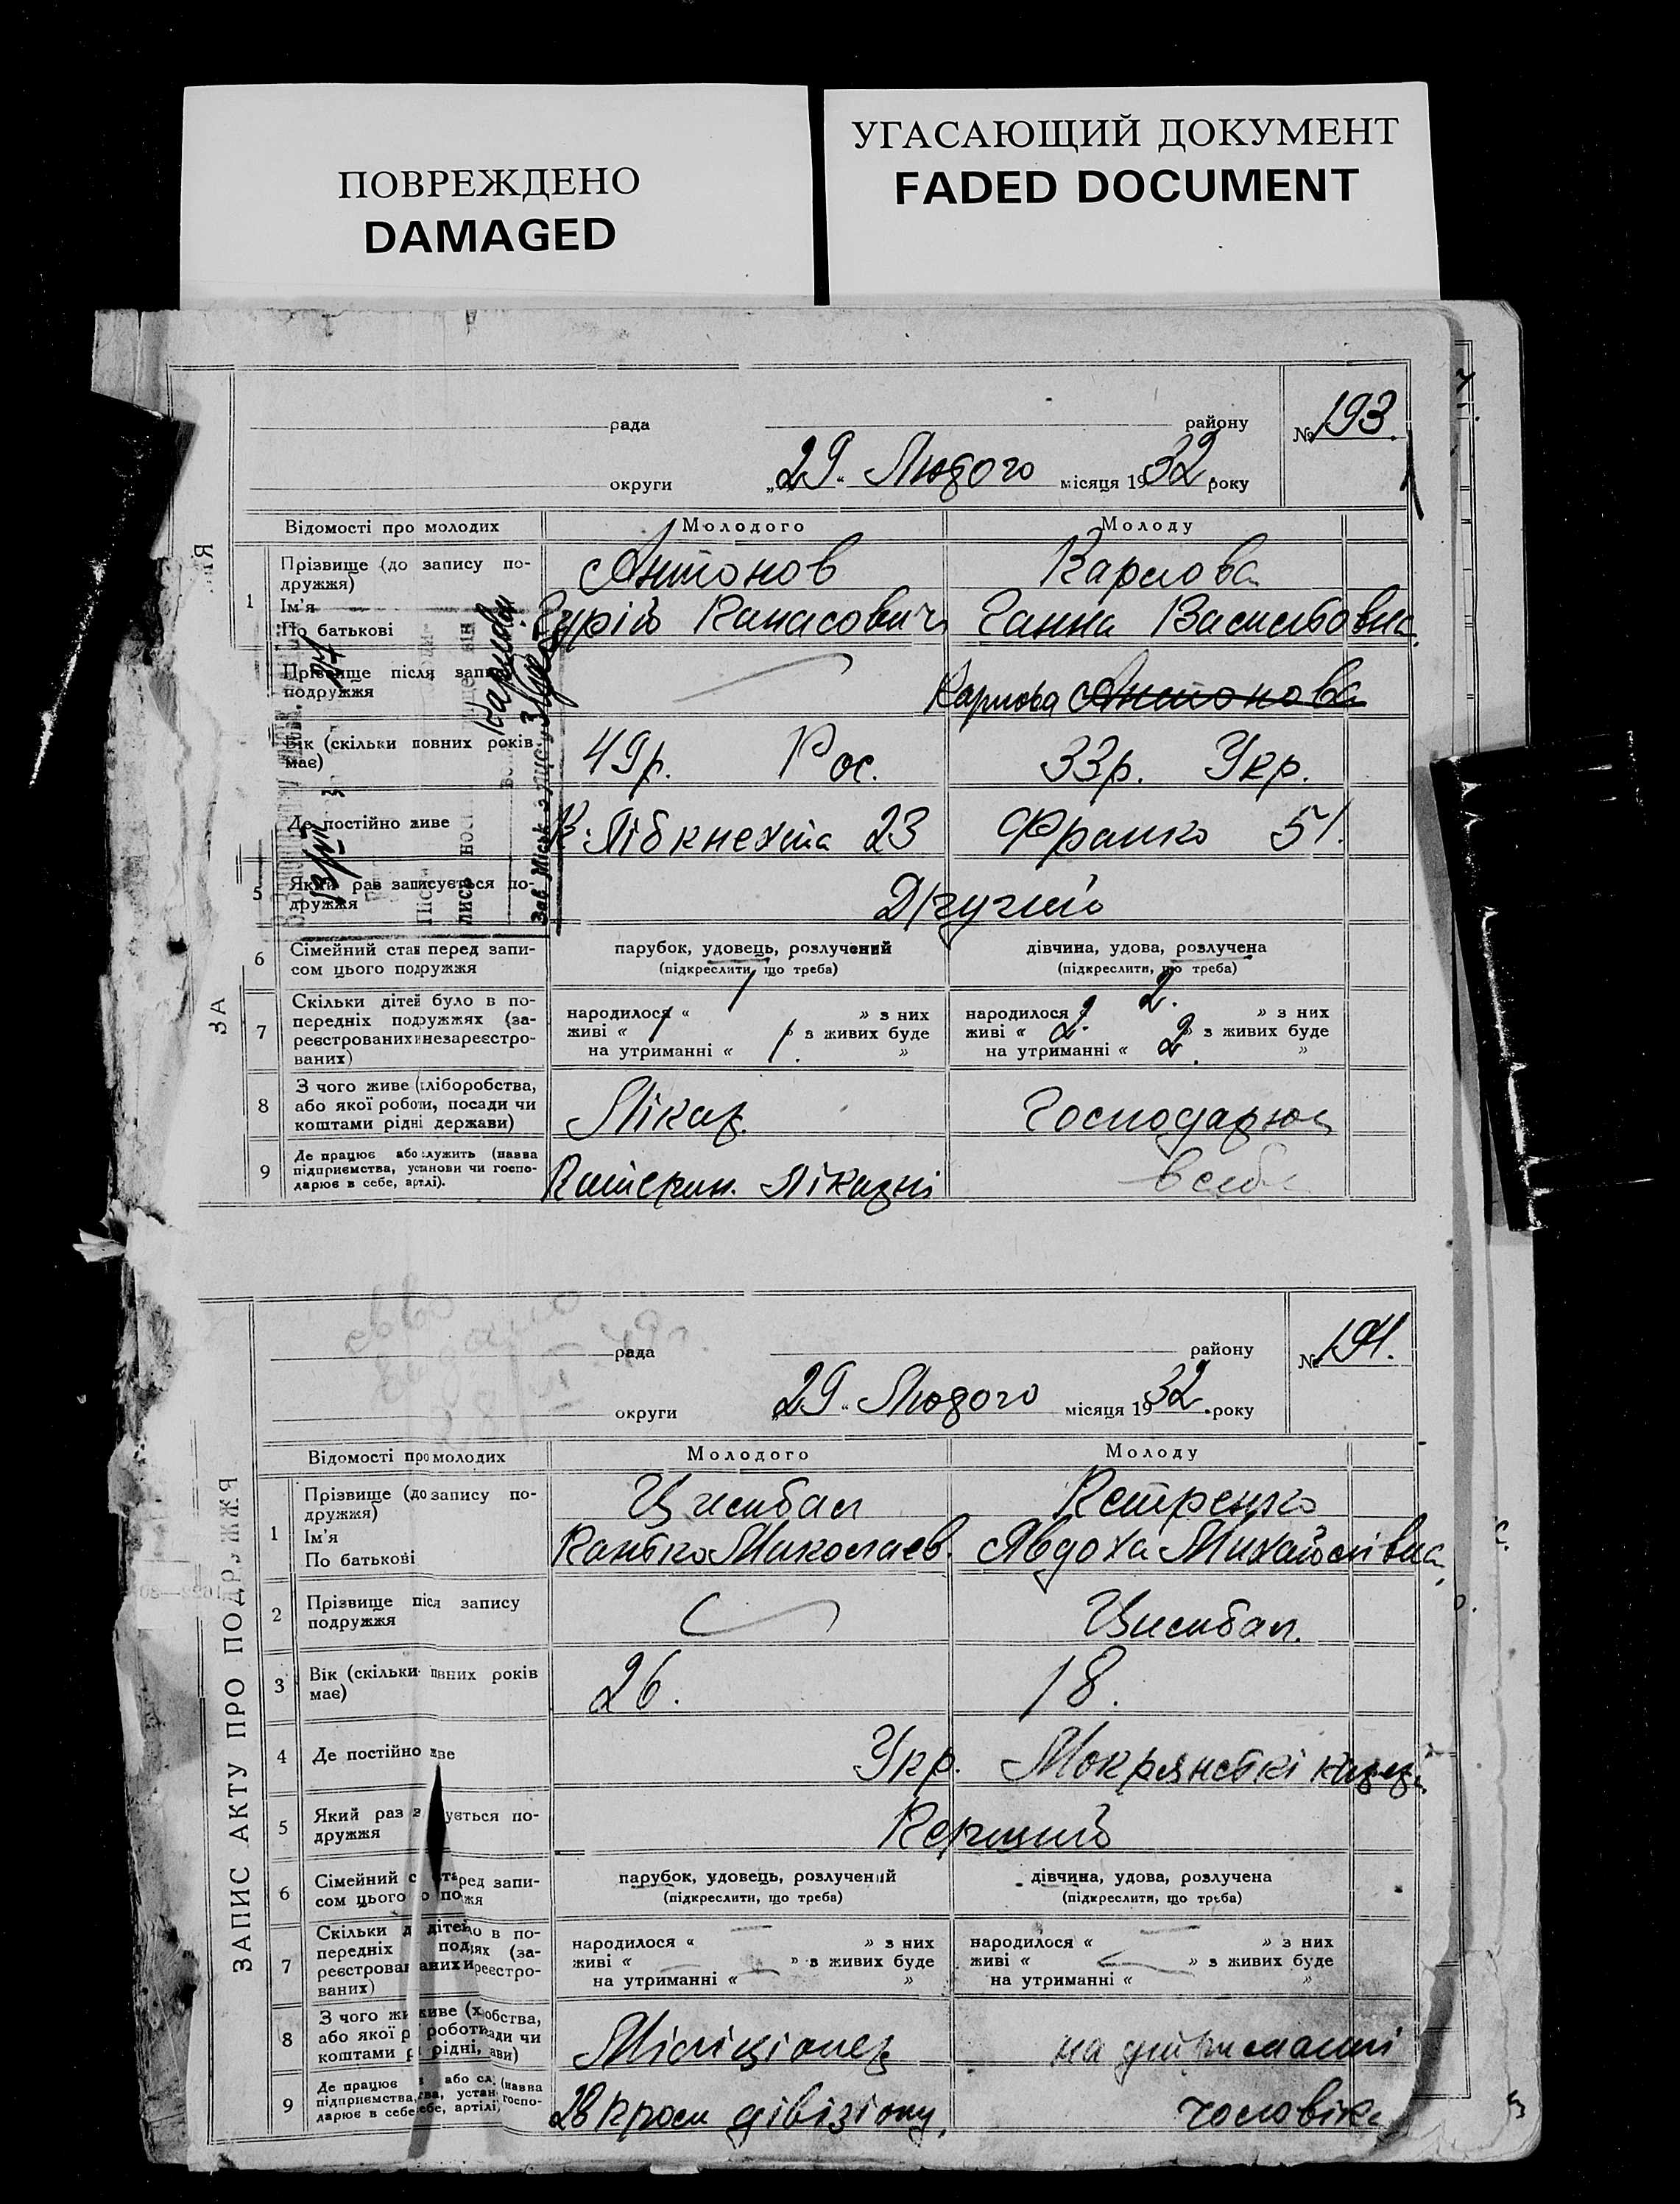 ПОВРЕЖДЕНО
DAMAGED
УГАСАЮЩИЙ ДОКУМЕНТ
FADED DOCUMENT
рада району № 193.
округи „29“ Лютого місяця 1932 року
Відомості про молодих Молодого Молоду
1 Прізвище (до запису подружжя) Антонов Карпова
Ім'я
По батькові Гурій Панасович Ганна Васильовна
Прізвище після запису подружжя Карпова Антонова
Вік (скільки повних років має) 49р. Рос. 33р. Укр.
Де постійно живе К. Лібкнехта 23 Франко 51.
5 Який раз записується подружжя Другий
6 Сімейний стан перед записом цього подружжя парубок, удовець, розлучений дівчина, удова, розлучена
(підкреслити, що треба) (підкреслити, що треба)
7 Скільки дітей було в попередніх подружжях (зареєстрованих і незареєстрованих)
народилося « 1 » з них народилося « 2. » з них
живі « 1 » з живих буде живі « 2. » з живих буде
на утриманні « 1. » на утриманні « 2. »
8 З чого живе (хліборобства, або якої роботи, посади чи коштами рідні держави) Лікар. Господарює
9 Де працює або служить (назва підприємства, установи чи господарює в себе, артілі). Катерин. Лікарні в себе
Зав Міськ
ЗА
рада району № 194.
округи „29“ Лютого місяця 1932 року
Відомості про молодих Молодого Молоду
ЗАПИС АКТУ ПРО ПОДРУЖЖЯ
1 Прізвище (до запису подружжя) Цимбал Петренко
Ім'я
По батькові Панько Миколаєв. Явдоха Михайлівна
2 Прізвище після запису подружжя Цимбал.
3 Вік (скільки повних років має) 26. 18.
4 Де постійно живе Укр. Мокрянські
5 Який раз записується подружжя Перший
6 Сімейний стан перед записом цього подружжя парубок, удовець, розлучений дівчина, удова, розлучена
(підкреслити, що треба) (підкреслити, що треба)
7 Скільки дітей було в попередніх подружжях (зареєстрованих і незареєстрованих)
народилося « » з них народилося « » з них
живі « » з живих буде живі « » з живих буде
на утриманні « » на утриманні « »
8 З чого живе (хліборобства, або якої роботи, посади чи коштами рідні, держави) Міліціонер на утриманні
9 Де працює або служить (назва підприємства, установи чи господарює в себе, артілі) дівізіону. чоловіка